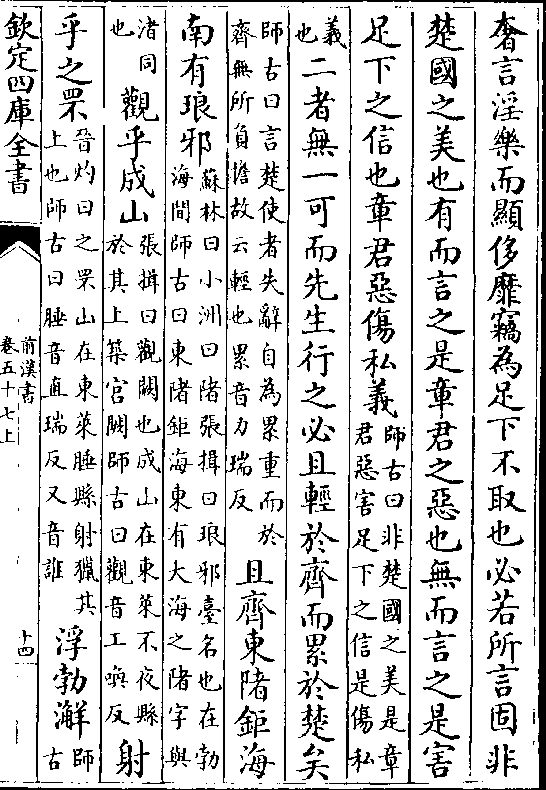 奢言淫樂而顯侈靡竊為足下不取也必若所言固非
楚國之美也有而言之是章君之惡也無而言之是害
足下之信也章君惡傷私義師古曰非楚國之美是章君惡害足下之信是傷私
義也二者無一可而先生行之必且輕於齊而累於楚矣
師古曰言楚使者失辭自為累重而於齊無所負擔故云輕也累音力瑞反且齊東陼鉅海
南有琅邪蘇林曰小洲曰陼張揖曰琅邪臺名也在勃海間師古曰東陼鉅海東有大海之陼字與
渚同也觀乎成山張揖曰觀闕也成山在東萊不夜縣於其上築宮闕師古曰觀音工喚反射
乎之罘晉灼曰之罘山在東萊腄縣射獵其上也師古曰腄音直瑞反又音誰浮勃澥師古
欽定四庫全書
前漢書
卷五十七上
十四